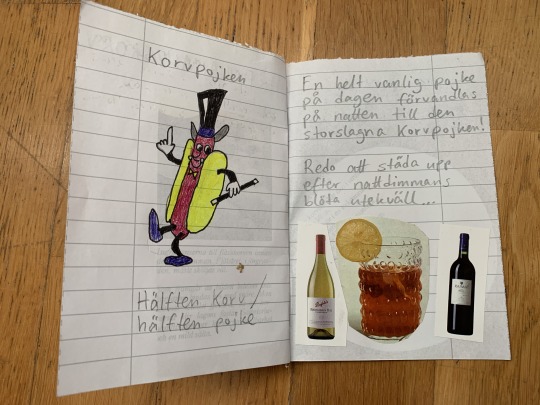 Korvpojken
Hälften Korv/
hälften pojke
En helt vanlig pojke
på dagen förvandlas
på natten till den
storslagna Korvpojken!
Redo att städa upp
efter nattdimmans
blöta utekväll...